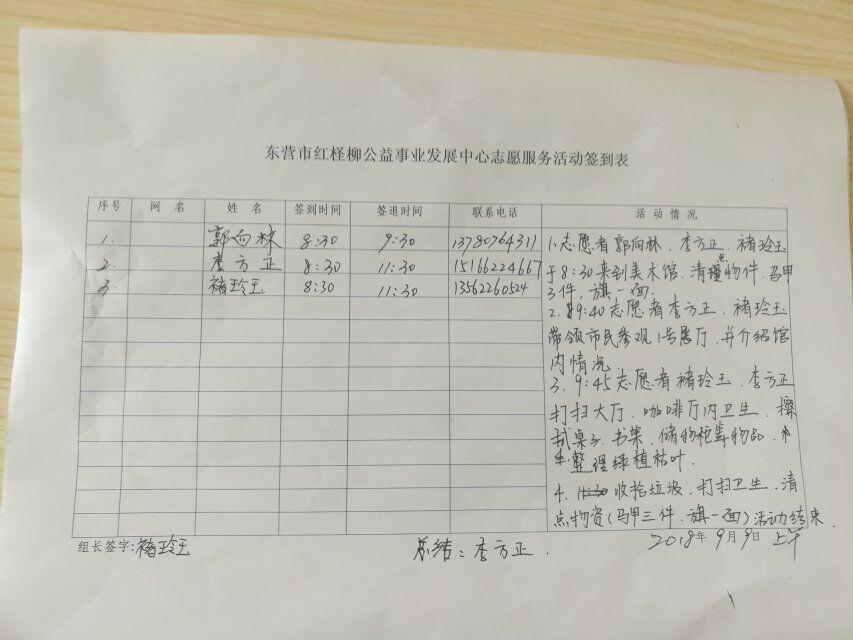 东营市红柽柳公益事业发展中心志愿服务活动签到表
序号 网 名 姓 名 签到时间 签退时间 联系电话 活 动 情 况
1. 郭向林 8:30 9:30 13780764311
2. 李方正 8:30 11:30 15166224667
3. 褚玲玉 8:30 11:30 13562260524
1.志愿者郭向林、李方正、褚玲玉
于8:30来到美术馆.清点物件.马甲
3件,旗一面.
2.9:40志愿者李方正、褚玲玉
带领市民参观1号展厅.并介绍馆
内情况
3.9:45志愿者褚玲玉、李方正
打扫大厅.咖啡厅内卫生.擦
拭桌子、书架、储物柜等物品.
整理绿植枯叶.
4.11:30收拾垃圾.打扫卫生.清
点物资(马甲三件.旗一面)活动结束.
组长签字:褚玲玉 总结:李方正. 2018年9月9日 上午